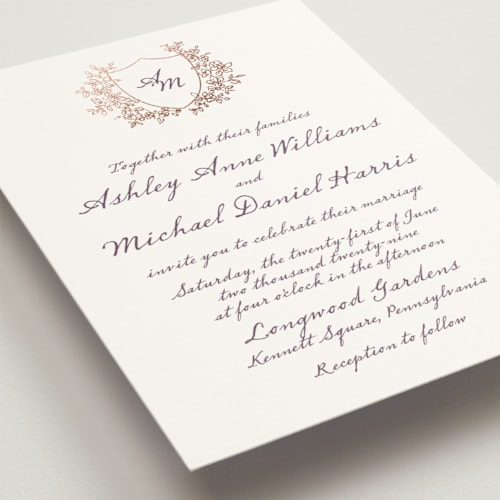 AM
Together with their families
Ashley Anne Williams
and
Michael Daniel Harris
invite you to celebrate their marriage
Saturday, the twenty-first of June
two thousand twenty-nine
at four o'clock in the afternoon
Longwood Gardens
Kennett Square, Pennsylvania
Reception to follow